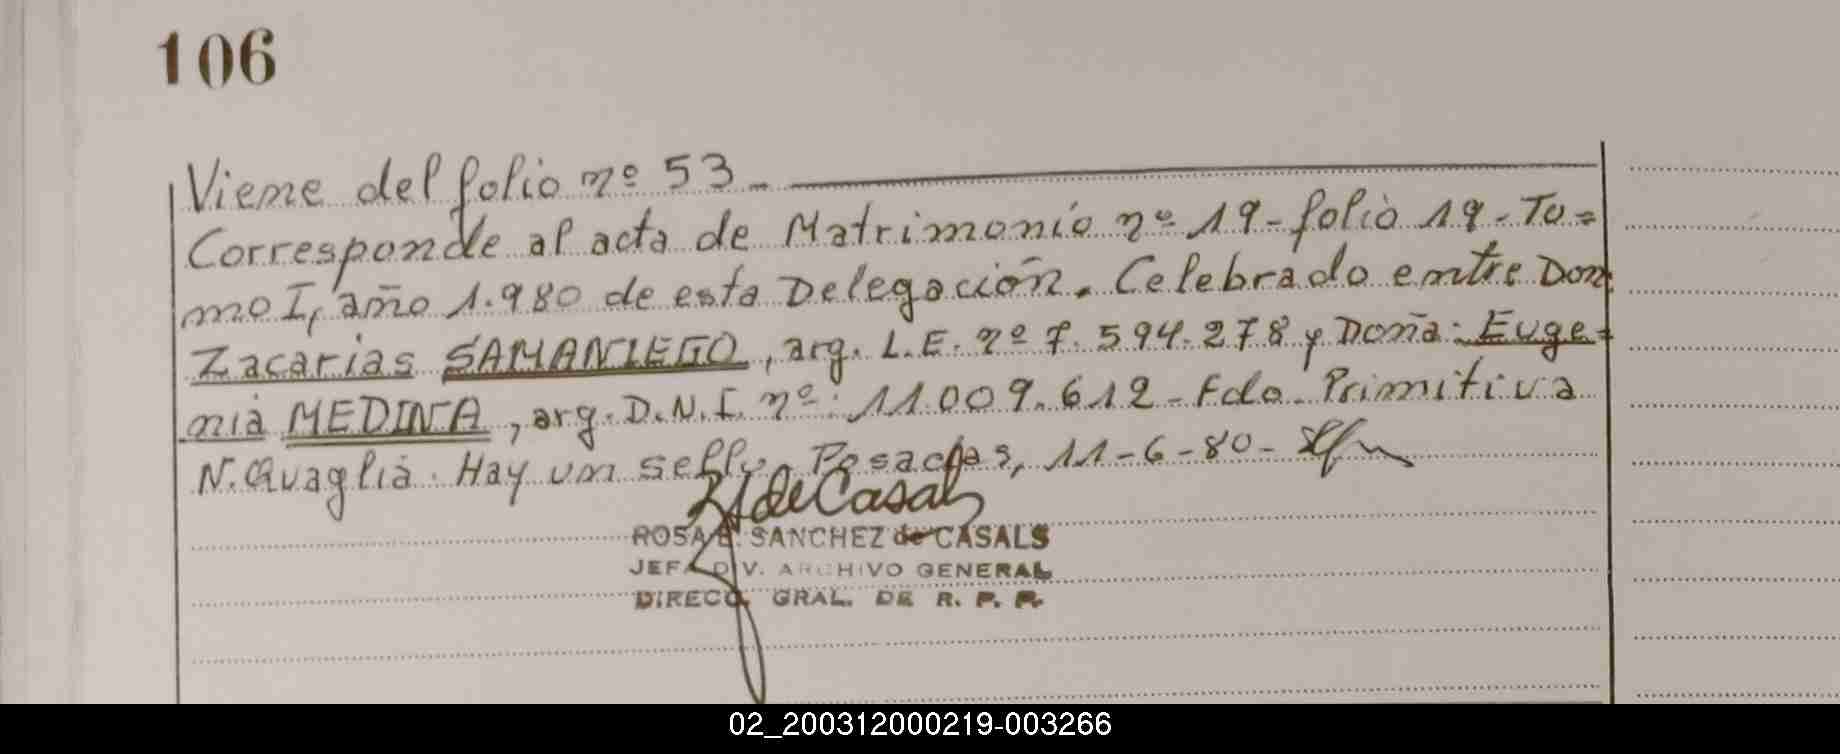 106
Viene del folio nº 53
Corresponde al acta de Matrimonio nº 19 - folio 19 - To=
mo I, año 1.980 de esta Delegación. Celebrado entre Don
Zacarias SAMANIEGO, arg. L.E. nº 7.594.278 y Doña: Euge=
nia MEDINA, arg. D.N.I. nº: 11.009.612 - Fdo. Primitiva
N. Quaglia. Hay un sello. Posadas, 11-6-80-
de Casals
ROSA E. SANCHEZ de CASALS
JEFA DIV. ARCHIVO GENERAL
DIRECC. GRAL. DE R. P. P.
02_200312000219-003266